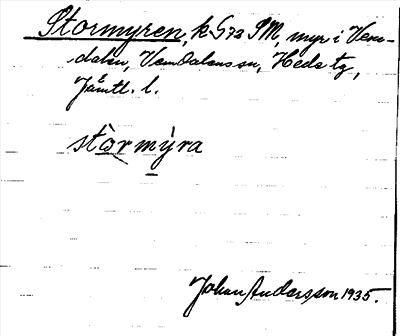 Stormyren, k G72 SM, myr i Vem-
dalen, Vemdalens sn, Hede tg,
Jämtl. l.
stòrmỳra
Johan Andersson 1935.